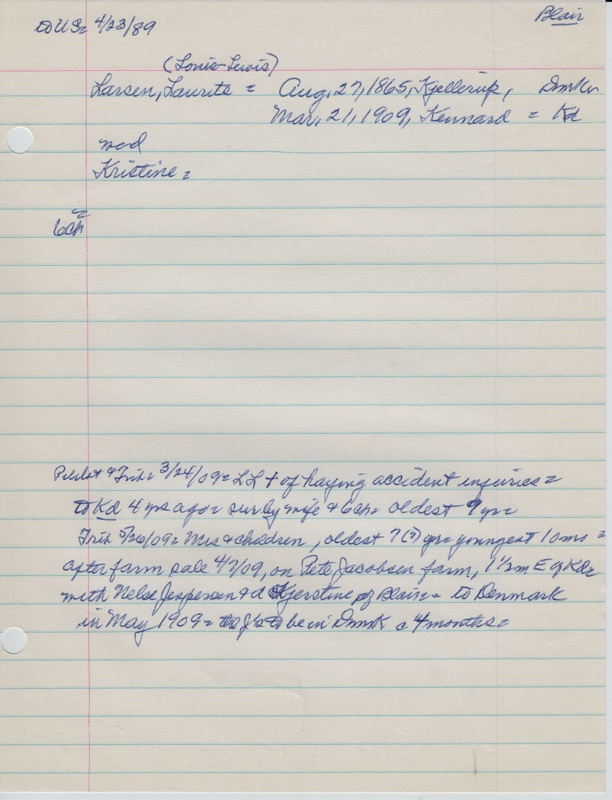 Blair
to US= 4/23/89
(Louis-Lewis)
Larsen, Laurits = Aug. 27, 1865, Kjellerup, Dmrk
Mar. 21, 1909, Kennard = Kd
wed
Kristine =
6ch
Pilot & Trib= 3/24/09= LL + of haying accident injuries=
to Kd 4 yrs ago= sur by wife & 6ch= oldest 9 yr=
Trib 5/26/09= Mrs & children, oldest 7(?) yr= youngest 10 mos=
after farm sale 4/7/09, on Pete Jacobsen farm, 1 1/2 m E of Kd=
with Nels Jespersen & d Kjerstine, of Blair= to Denmark
in May 1909= to be in Dmrk a 4 months=